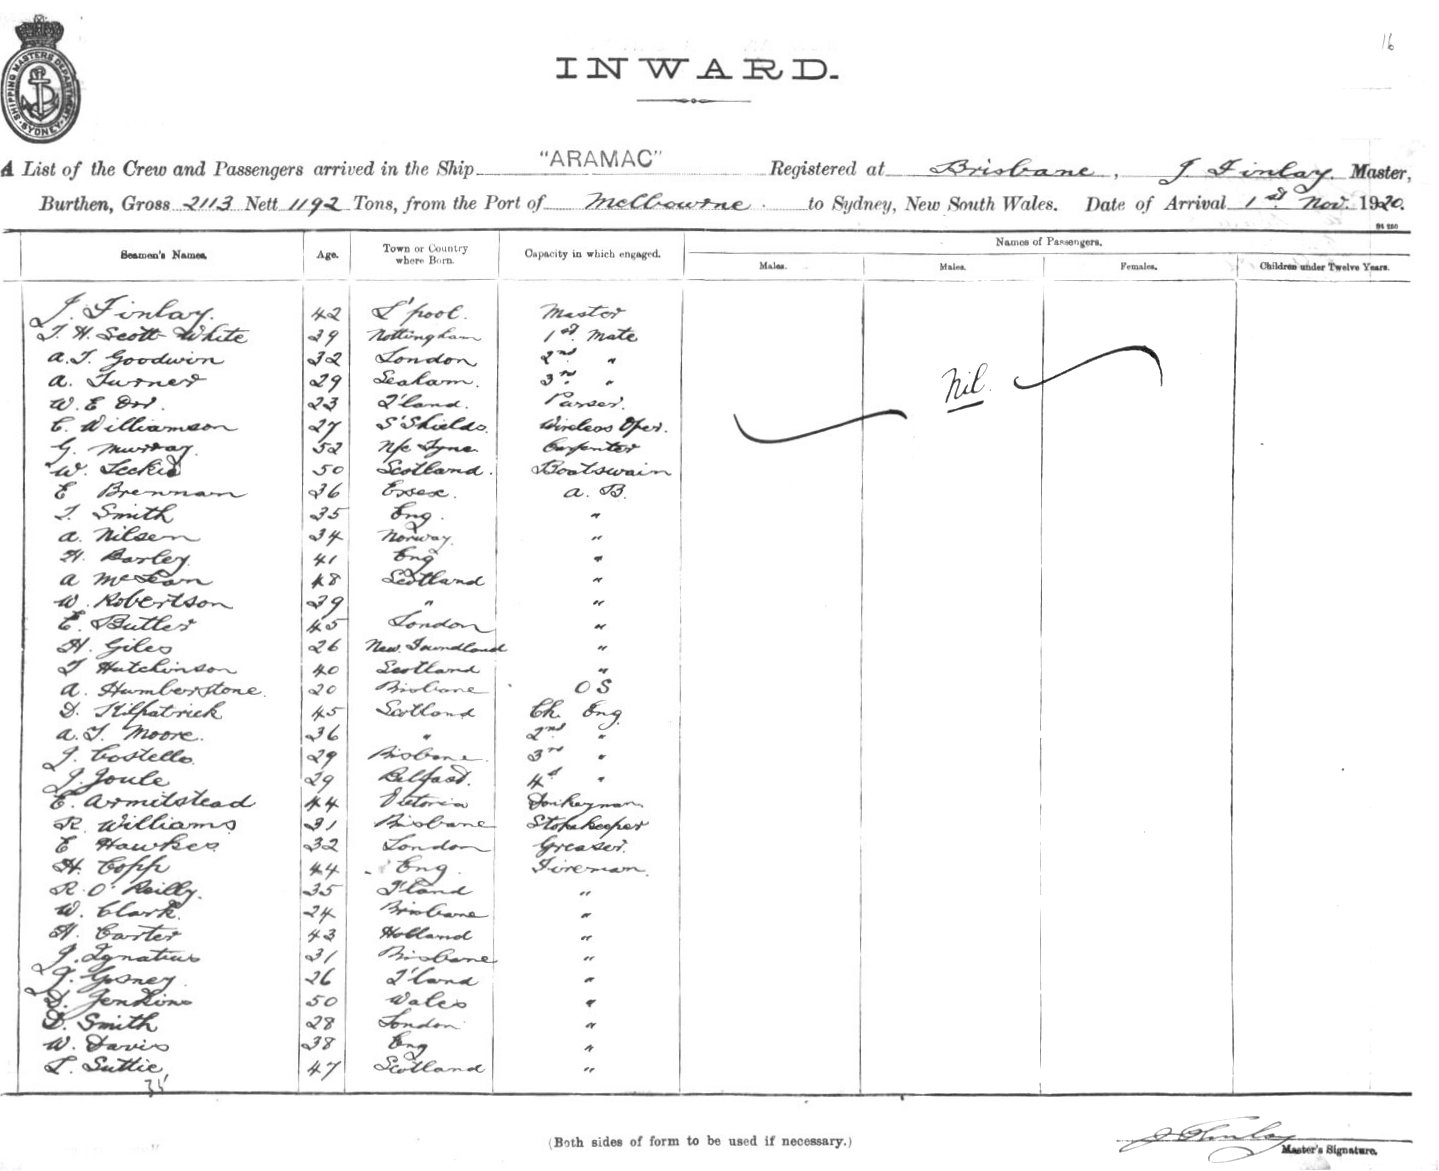 16
INWARD.
SHIPPING MASTERS DEPARTMENT SYDNEY
A List of the Crew and Passengers arrived in the Ship "ARAMAC" Registered at Brisbane, J Finlay. Master,
Burthen, Gross 2113 Nett 1192 Tons, from the Port of Melbourne. to Sydney, New South Wales. Date of Arrival 1st Nov. 1920.
Seamen's Names. Age. Town or Country where Born. Capacity in which engaged. Names of Passengers.
Males. Males. Females. Children under Twelve Years.
J. Finlay. 42 L'pool. Master
T. H. Scott White 29 Nottingham 1st Mate
A. T. Goodwin 32 London 2nd "
A. Turner 29 Seaham. 3rd "
W. E Orr. 23 I'land. Purser.
C. Williamson 27 S'Shields. Wireless Oper.
G. Murray. 52 N/c Tyne. Carpenter
W. Leckie 50 Scotland. Boatswain
E Brennan 36 Essex. A. B.
T. Smith 35 Eng. "
A. Nilsen 34 Norway. "
H. Barley. 41 Eng "
A McLean 48 Scotland "
W. Robertson 39 " "
E. Butler 45 London "
H. Giles 26 New Foundland "
T Hutchinson 40 Scotland "
A. Humberstone. 20 Brisbane O S
D. Kilpatrick 45 Scotland Ch. Eng.
A. T. Moore. 36 " 2nd "
J. Costello. 29 Brisbane. 3rd "
J. Joule 29 Belfast. 4th "
E. Armitstead 44 Victoria Donkeyman.
R. Williams 31 Brisbane Storekeeper
E Hawkes 32 London Greaser.
H. Copp 44 Eng. Fireman.
R. O'Reilly. 35 I'land "
W. Clark. 24 Brisbane "
H. Carter 43 Holland "
J. Ignatius 31 Brisbane "
J. Gosney. 26 I'land "
D. Jenkins 50 Wales "
D. Smith 28 London "
W. Davis 38 Eng "
L. Suttie, 47 Scotland "
35
Nil.
(Both sides of form to be used if necessary.)
J Finlay
Master's Signature.